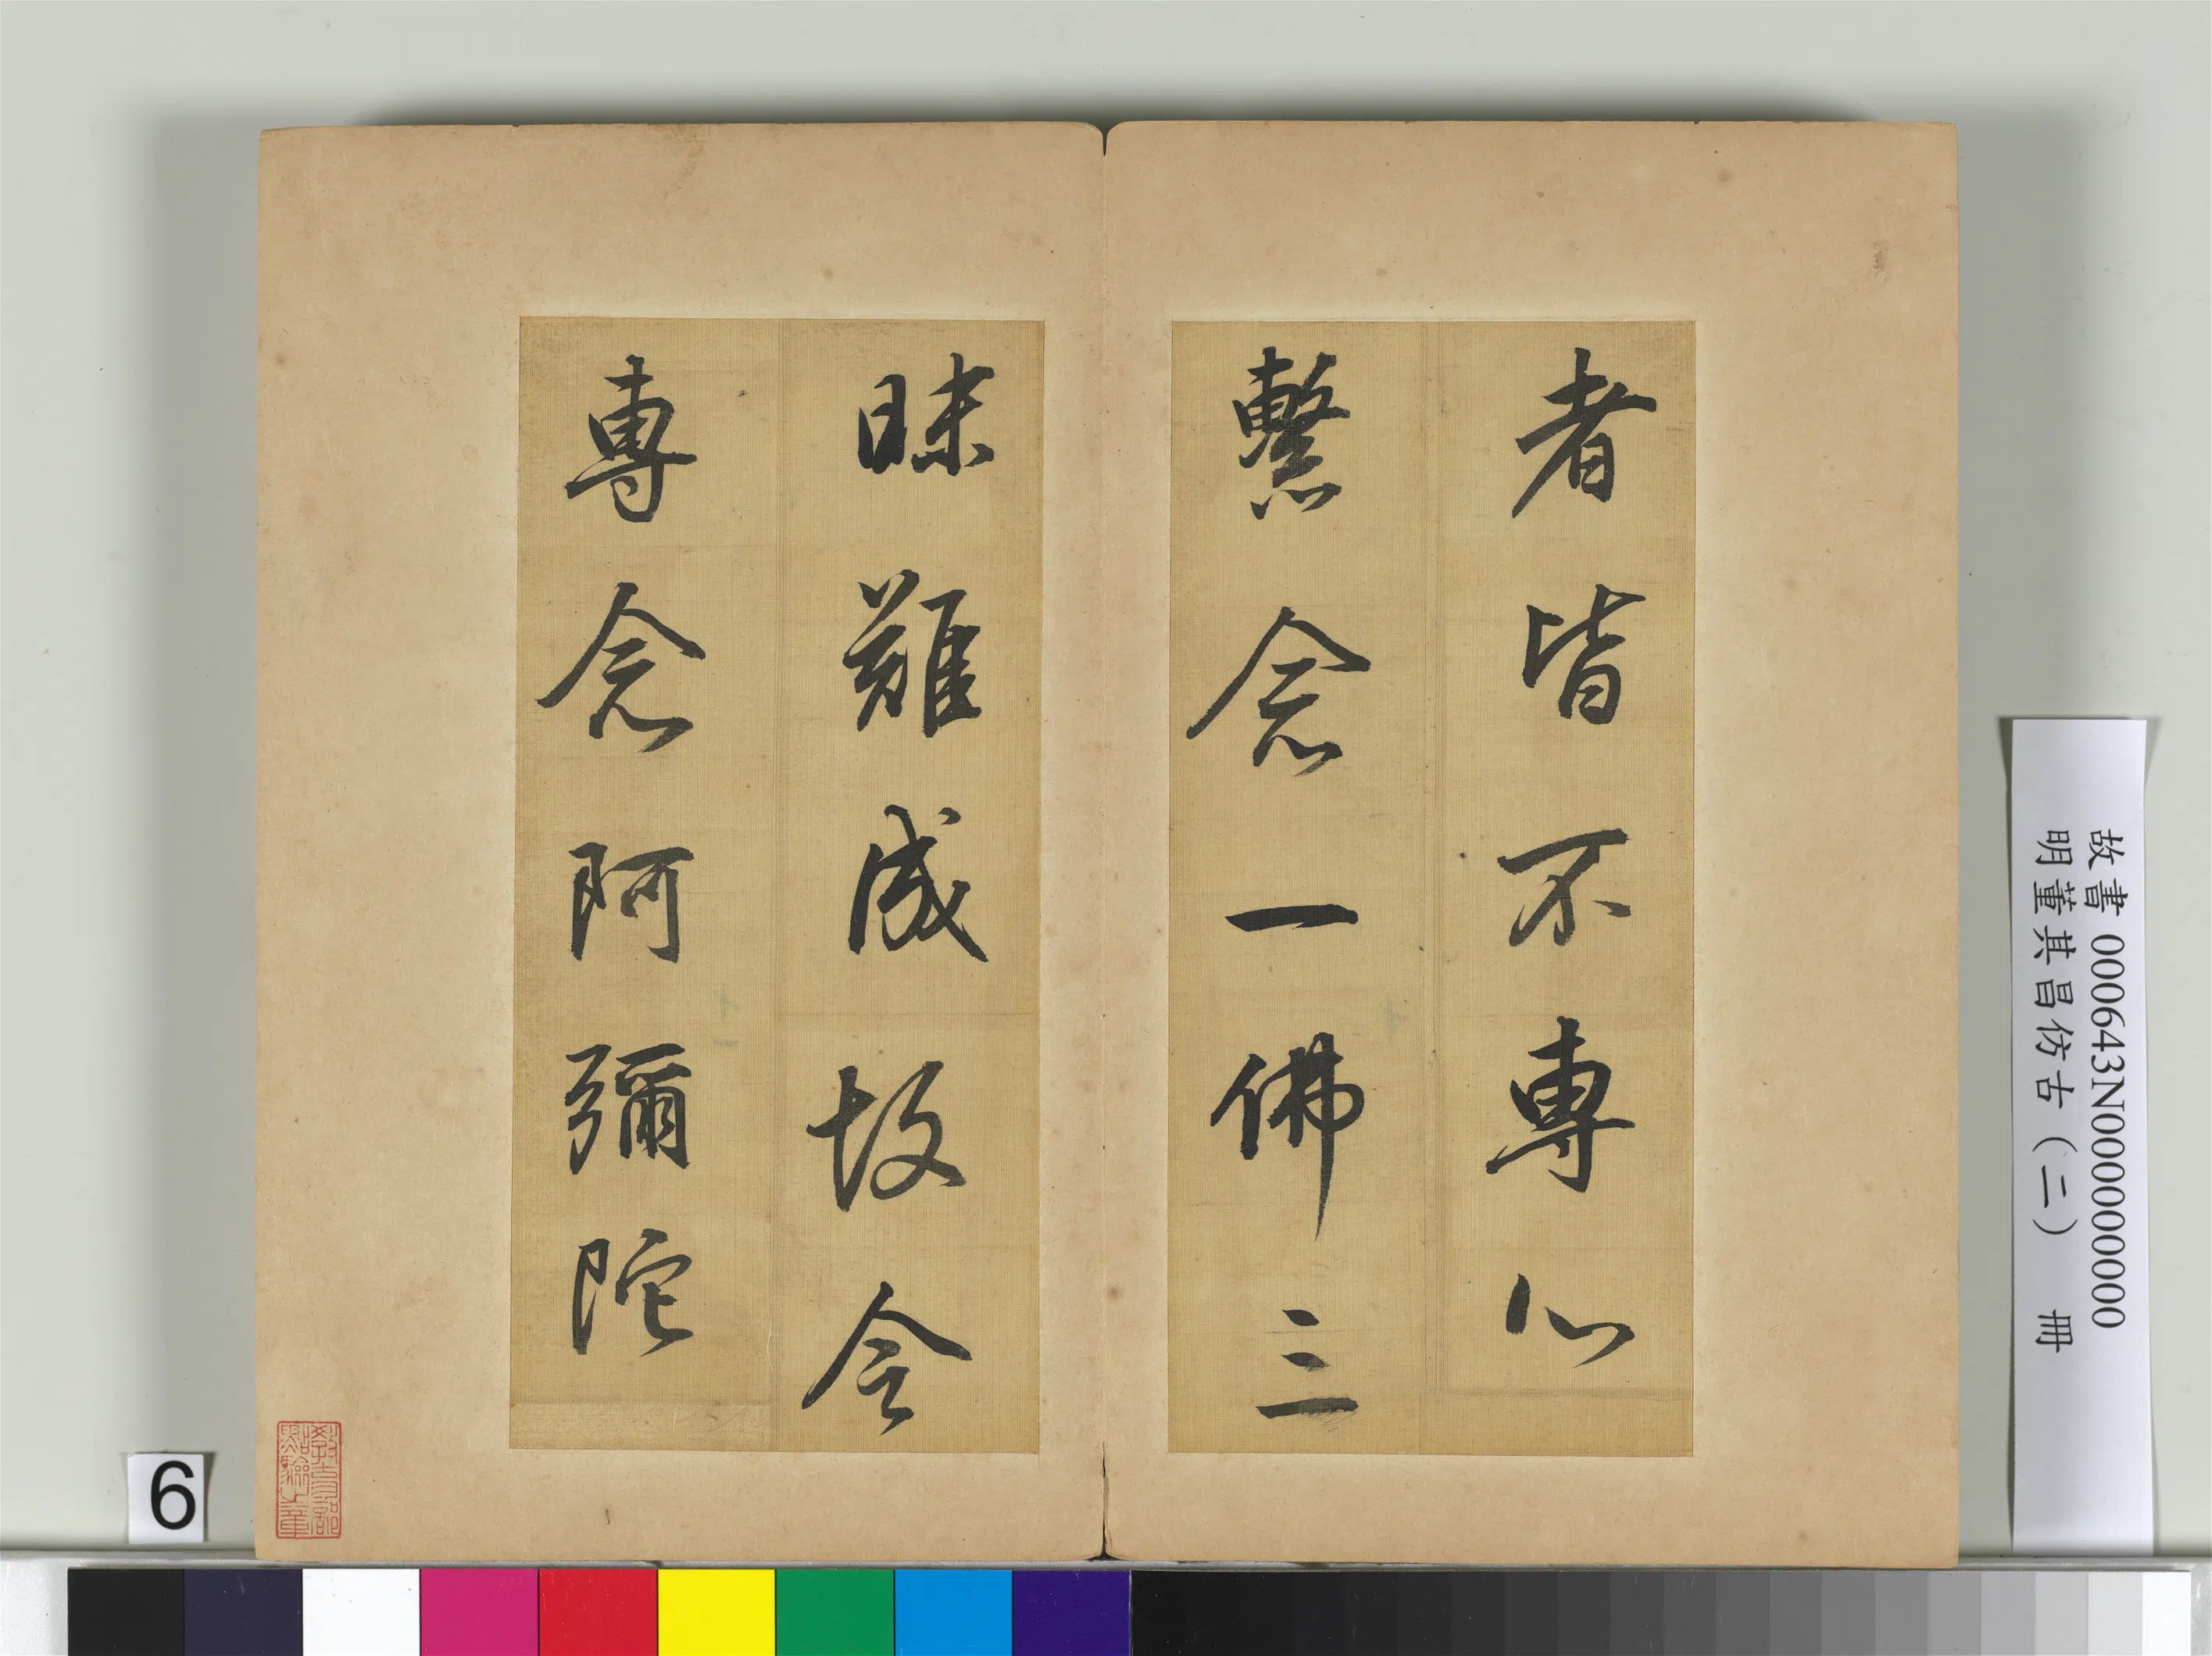 者皆不專心
繫念一佛三
昧難成故令
專念阿彌陀
教育部
點驗之章
故書 000643N000000000
明董其昌仿古（二） 冊
6